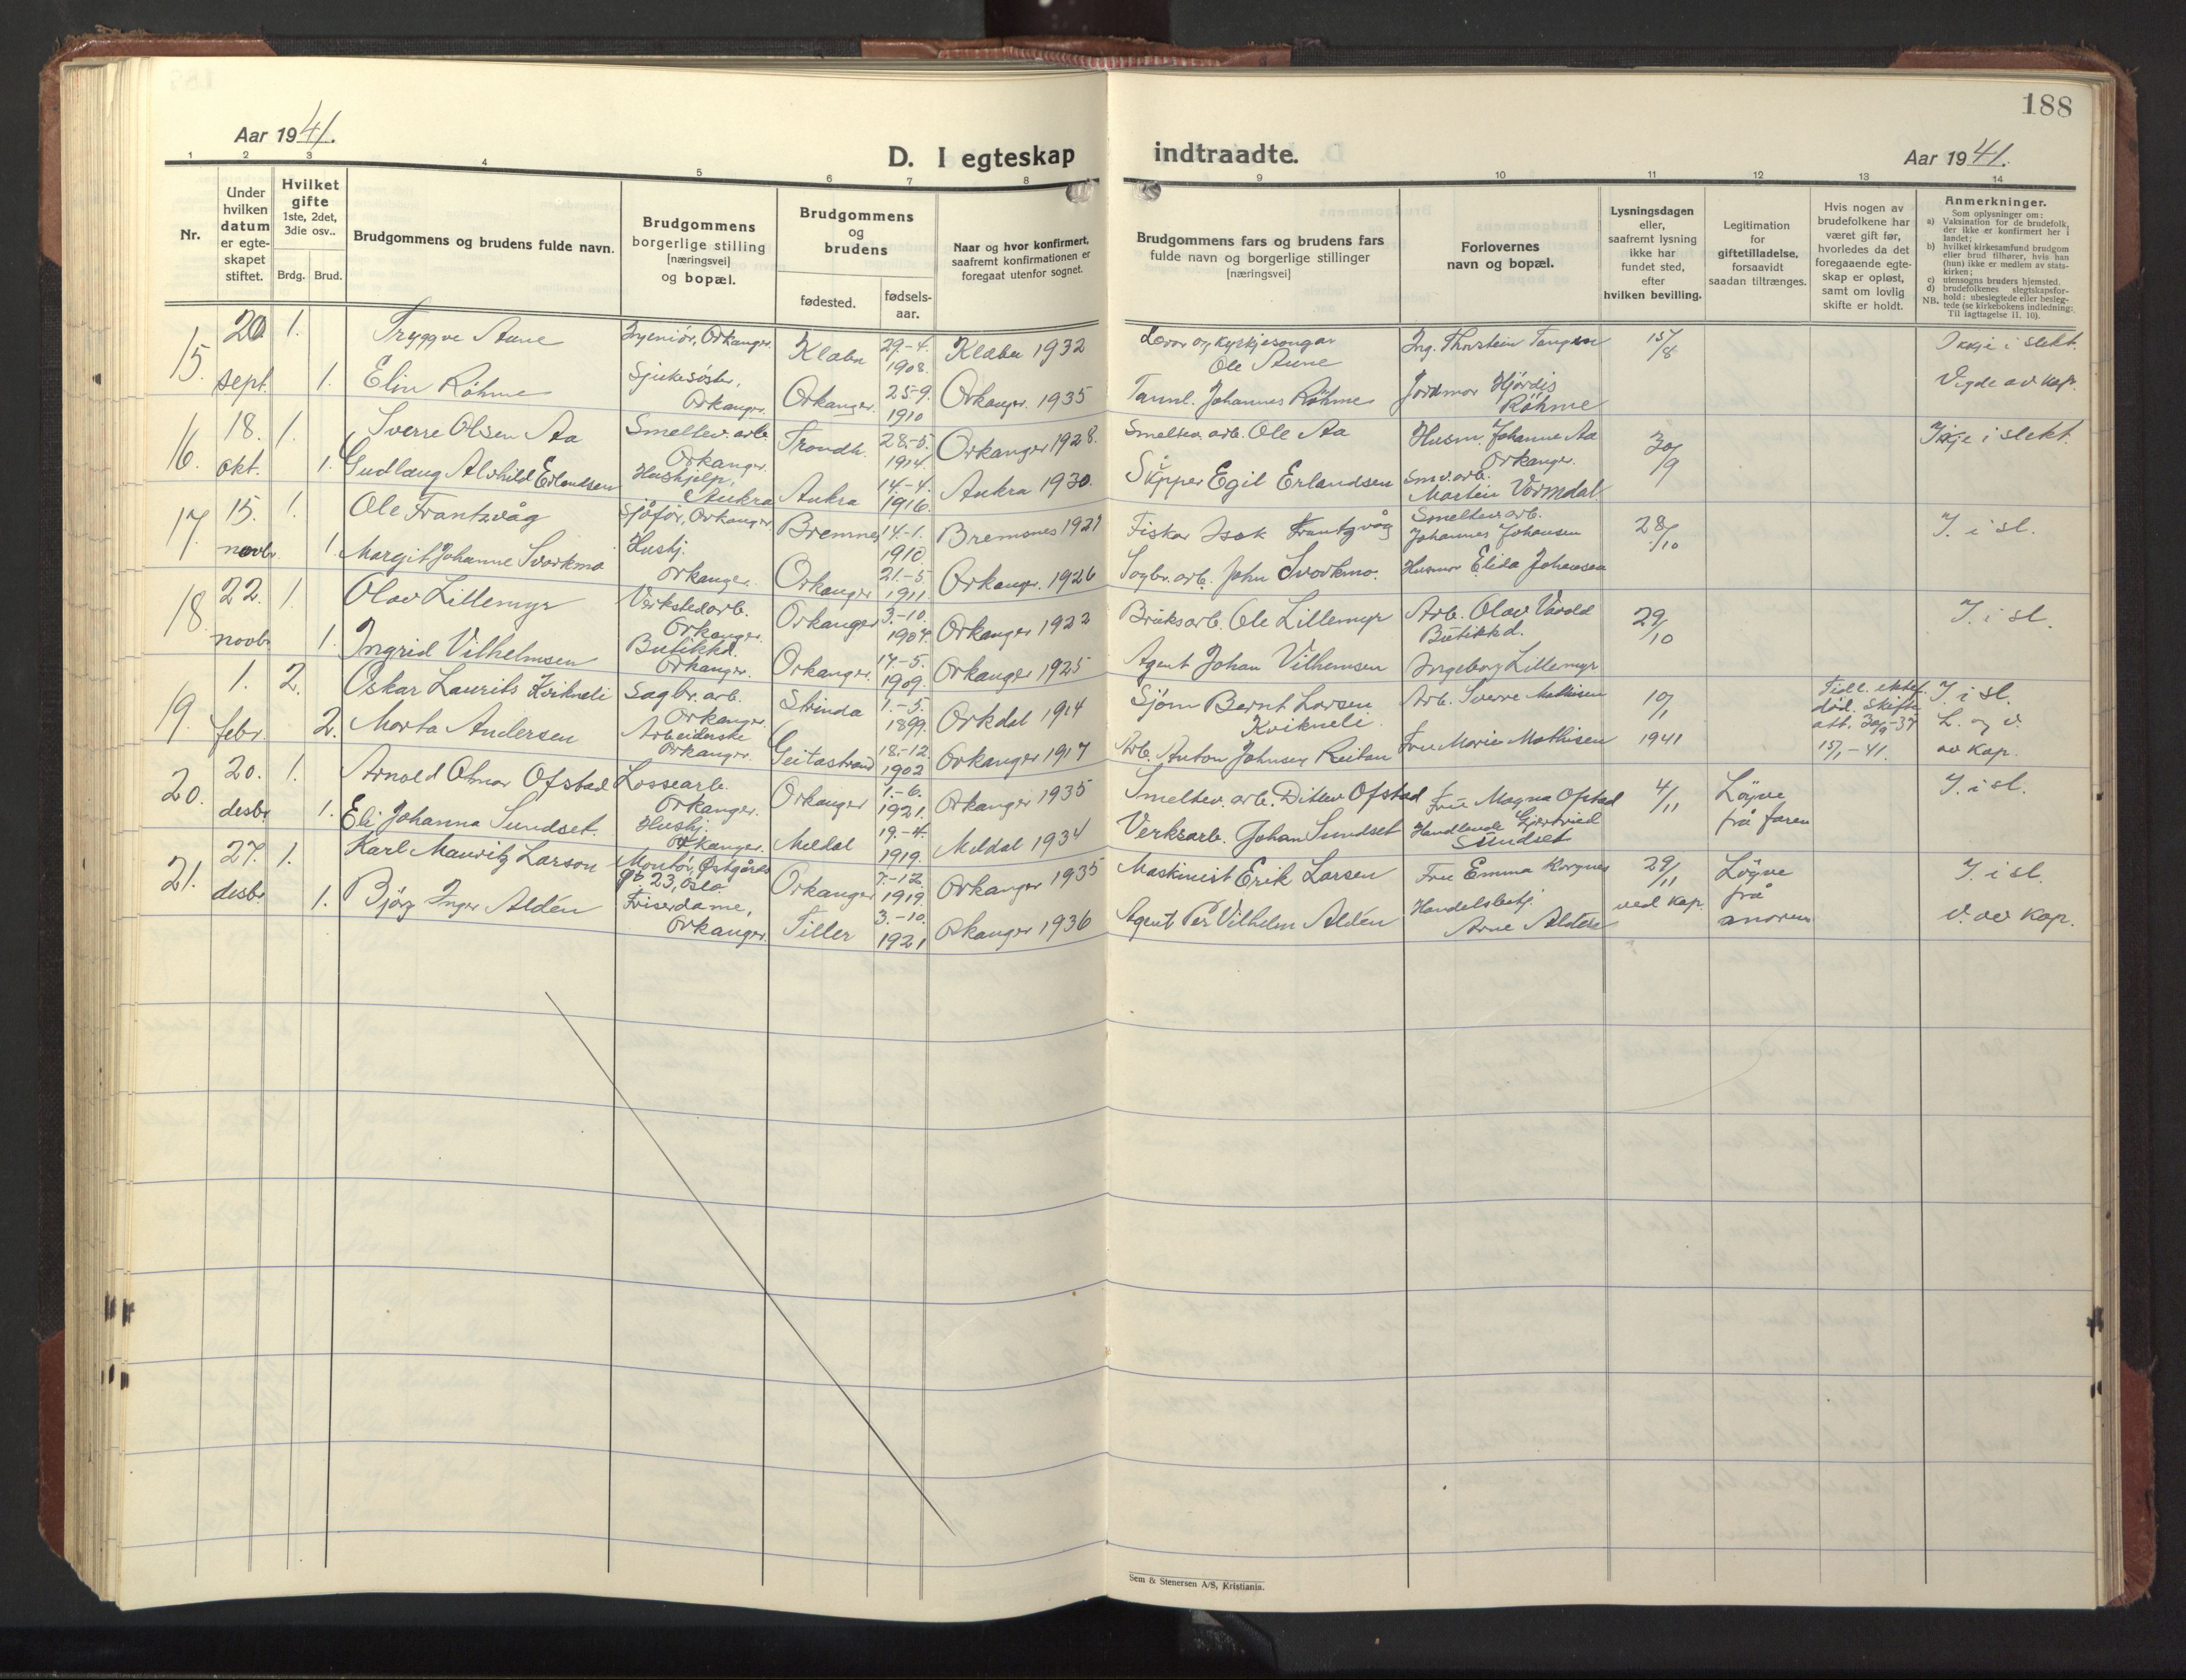 188
Aar 1941.
D. I egteskap indtraadte.
Aar 1941.
1 2 3 4 5 6 7 8 9 10 11 12 13 14
Nr.
Under hvilken datum er egte-skapet stiftet.
Hvilket gifte 1ste, 2det, 3die osv..
Brdg. Brud.
Brudgommens og brudens fulde navn.
Brudgommens borgerlige stilling [næringsvei] og bopæl.
Brudgommens og brudens
fødested. fødsels-aar.
Naar og hvor konfirmert, saafremt konfirmationen er foregaat utenfor sognet.
Brudgommens fars og brudens fars fulde navn og borgerlige stillinger [næringsvei]
Forlovernes navn og bopæl.
Lysningsdagen eller, saafremt lysning ikke har fundet sted, efter hvilken bevilling.
Legitimation for giftetilladelse, forsaavidt saadan tiltrænges.
Hvis nogen av brudefolkene har været gift før, hvorledes da det foregaaende egte-skap er opløst, samt om lovlig skifte er holdt.
Anmerkninger.
Som oplysninger om:
a) Vaksination for de brudefolk, der ikke er konfirmert her i landet;
b) hvilket kirkesamfund brudgom eller brud tilhører, hvis han (hun) ikke er medlem av stats-kirken;
c) utensogns bruders hjemsted.
d) brudefolkenes slegtskapsfor-hold: ubeslegtede eller besleg-tede (se kirkebokens indledning:
NB. Til iagttagelse II. 10).
15. 20 sept. 1. Tryggve Aune Ingeniør, Orkanger. Klæbu 29-4. 1908. Klæbu 1932 Lærar og kyrkjesongar Ole Aune Ing. Thorstein Tangen 15/8 Ikkje i slekt.
1. Elin Röhme Sjukesøster, Orkanger. Orkanger. 25-9. 1910 Orkanger. 1935 Tannl. Johannes Röhme Jordmor Hjördis Röhme Vigde av kap.
16. 18. okt. 1. Sverre Olsen Aa Smeltev. arb. Orkanger. Trondh. 28-5. 1914. Orkanger 1928. Smeltev. arb. Ole Aa Husm. Johanne Aa Orkanger. 30/9 Ikkje i slekt.
1. Gudlaug Alvhild Erlandsen Hushjelp, Aukra Aukra 14-4. 1916. Aukra 1930. Skipper Egil Erlandsen Smv. arb. Martin Vormdal
17. 15. novbr. 1. Ole Frantzvåg Sjåfør, Orkanger Bremnes 14.-1. 1910. Bremsnes 1927 Fiskar Isak Frantzvåg Smeltev. arb. Johannes Johansen 28/10 I. i sl.
1. Margit Johanne Svorkmo Hushj. Orkanger. Orkanger 21.-5. 1911. Orkanger. 1926 Sagbr. arb. John Svorkmo. Husmor Elida Johansen
18. 22. novbr. 1. Olav Lillemyr Verkstedarb. Orkanger. Orkanger 3.-10. 1904. Orkanger 1922 Bruksarb. Ole Lillemyr Arb. Olav Vavold 29/10 I. i sl.
1. Ingrid Vilhelmsen Butikkd. Orkanger. Orkanger. 17.-5. 1909. Orkanger 1925 Agent Johan Vilhemsen Butikkd. Ingeborg Lillemyr
19. 1. febr. 2. Oskar Laurits Kvikneli Sagbr. arb. Orkanger. Strinda 1.-5. 1899. Orkdal 1914 Sjöm Bernt Larsen Kvikneli. Arb. Sverre Mathisen 10/1 1941 Tidl. ektef. död. Skifte att. 30/9-37 I. i sl.
2. Marta Andersen Arbeiderske Orkanger. Geitastrand 18.-12. 1902 Orkanger 1917 Arb. Anton Johnsen Reitan Fru Marie Mathisen 15/1-41. L. og v. av kap.
20. 20. desbr. 1. Arnold Otmar Ofstad Lossearb. Orkanger. Orkanger 1.-6. 1921. Orkanger 1935 Smeltev. arb. Ditlev Ofstad Fru Magna Ofstad 4/11 Löyve frå faren I. i sl.
1. Eli Johanna Sundset. Hushj. Orkanger. Meldal 19.-4. 1919. Meldal 1934 Verksarb. Johan Sundset Handlende Gjertrud Sundset
21. 27. desbr. 1. Karl Mauritz Larson Montör, Østgårds gt. 23, Oslo. Orkanger 7.-12. 1919. Orkanger 1935 Maskinist Erik Larsen Fru Emma Korgnes 29/11 ved kap. Löyve frå moren I. i sl.
1. Björg Inger Aldén Friserdame, Orkanger. Tiller 3.-10. 1921 Orkanger 1936 Agent Per Vilhelm Aldén Handelsbetj. Arne Alden v. av kap.
Sem & Stenersen A/S, Kristiania.